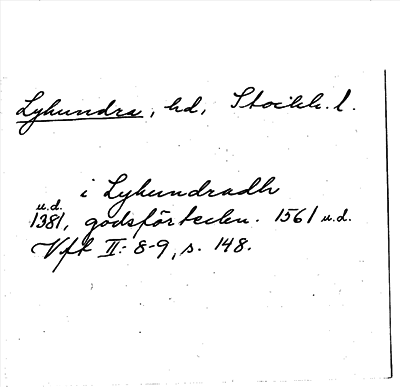 Lyhundra, hd, Stockh. l.
i Lyhundradh
u.d.
1381, godsförteckn. 1561 u.d.
Vfk II:- 8-9, s. 148.